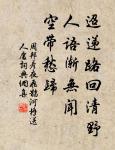 迢递路回清野
人语渐无闻
空带愁归
周邦彦夜飞鹊河桥送
人宫词典网集